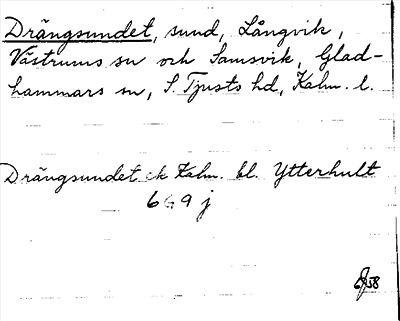 Drängsundet, sund, Långvik,
Västrums sn och Samsvik, Glad-
hammars sn, S. Tjusts hd, Kalm. l.
Drängsundet ek Kalm. bl. Ytterhult
669 j